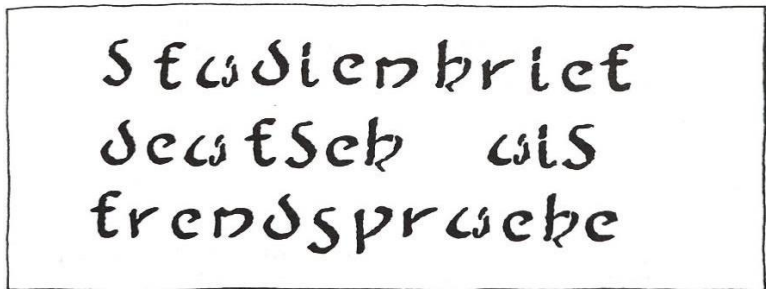 Studienbrief
deutsch als
fremdsprache